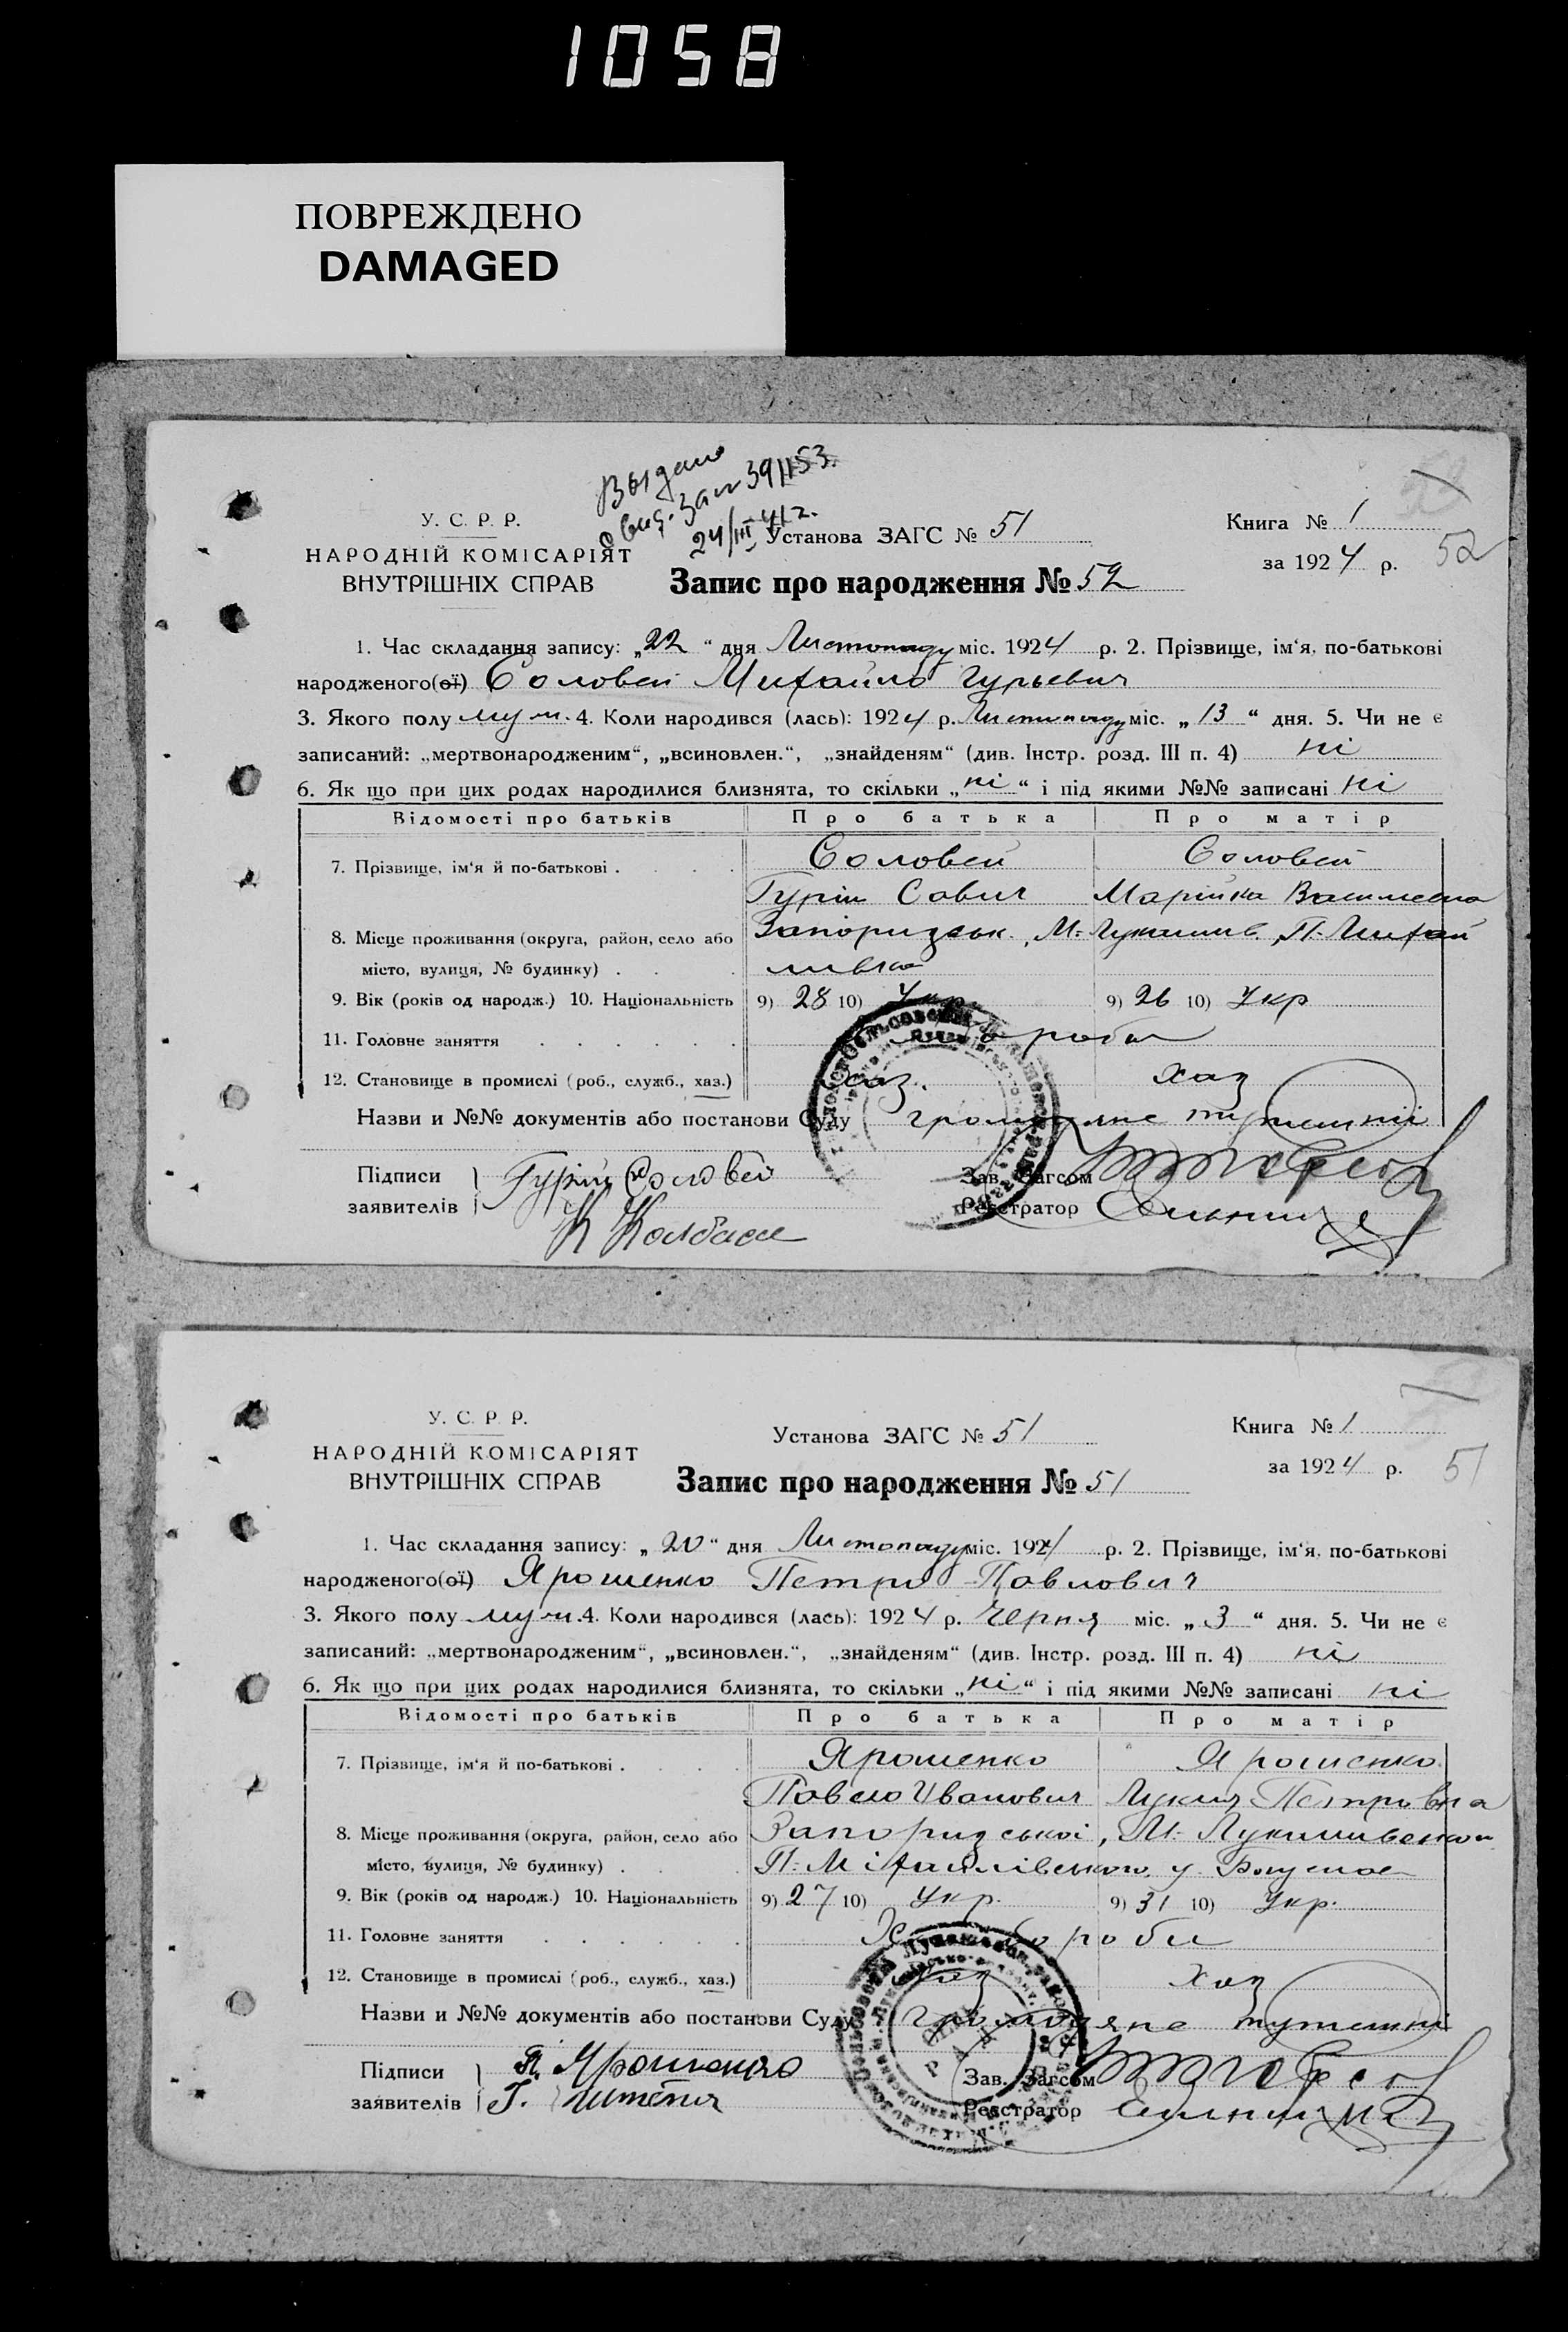 1058
ПОВРЕЖДЕНО
DAMAGED
Выдано
24/III 41 г.
У. С. Р. Р.
НАРОДНІЙ КОМІСАРІЯТ
ВНУТРІШНІХ СПРАВ
Установа ЗАГС № 51
Книга № 1
за 1924 р.
52
Запис про народження № 52
1. Час складання запису: „22“ дня Листопаду міс. 1924 р. 2. Прізвище, ім‘я, по-батькові
народженого(ої) Соловей Михайло Гурьевич
3. Якого полу муж. 4. Коли народився (лась): 1924 р. Листопаду міс. „13“ дня. 5. Чи не є
записаний: „мертвонародженим“, „всиновлен.“, „знайденям“ (див. Інстр. розд. III п. 4) ні
6. Як що при цих родах народилися близнята, то скільки „ні“ і під якими №№ записані ні
Відомості про батьків Про батька Про матір
7. Прізвище, ім‘я й по-батькові . Соловей Соловей
Гурій Савич Марійка Василевна
8. Місце проживання (округа, район, село або Запоридзьк., М-Лукашив. П-Михай
місто, вулиця, № будинку) . лівка
9. Вік (років од народж.) 10. Національність 9) 28 10) Укр. 9) 26 10) Укр
11. Головне заняття
12. Становище в промислі (роб., служб., хаз.) хаз. хаз
Назви и №№ документів або постанови Суду громадяне тутешні
Підписи Гурій Соловей Зав. Загсом
заявителів К Колбаса Реєстратор
У. С. Р. Р.
НАРОДНІЙ КОМІСАРІЯТ
ВНУТРІШНІХ СПРАВ
Установа ЗАГС № 51
Книга № 1
за 1924 р.
51
Запис про народження № 51
1. Час складання запису: „20“ дня Листопаду міс. 1924 р. 2. Прізвище, ім‘я, по-батькові
народженого(ої) Ярошенко Петро Павлович
3. Якого полу муж. 4. Коли народився (лась): 1924 р. Черня міс. „3“ дня. 5. Чи не є
записаний: „мертвонародженим“, „всиновлен.“, „знайденям“ (див. Інстр. розд. III п. 4) ні
6. Як що при цих родах народилися близнята, то скільки „ні“ і під якими №№ записані ні
Відомості про батьків Про батька Про матір
7. Прізвище, ім‘я й по-батькові . Ярошенко Ярошенко
Павло Иванович Лукия Петровна
8. Місце проживання (округа, район, село або Запоридської, М-Лукашивського
місто, вулиця, № будинку) . П-Міхайлівського, у
9. Вік (років од народж.) 10. Національність 9) 27 10) Укр. 9) 31 10) Укр.
11. Головне заняття Хлібороби
12. Становище в промислі (роб., служб., хаз.) хаз хаз
Назви и №№ документів або постанови Суду громадяне тутешні
Підписи П. Ярошенко Зав. Загсом
заявителів Реєстратор